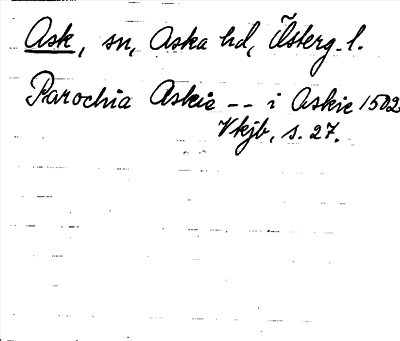 Ask, sn, Aska hd, Österg. l.
Parochia Askie -- i Askie 1502
Vkjb, s. 27.